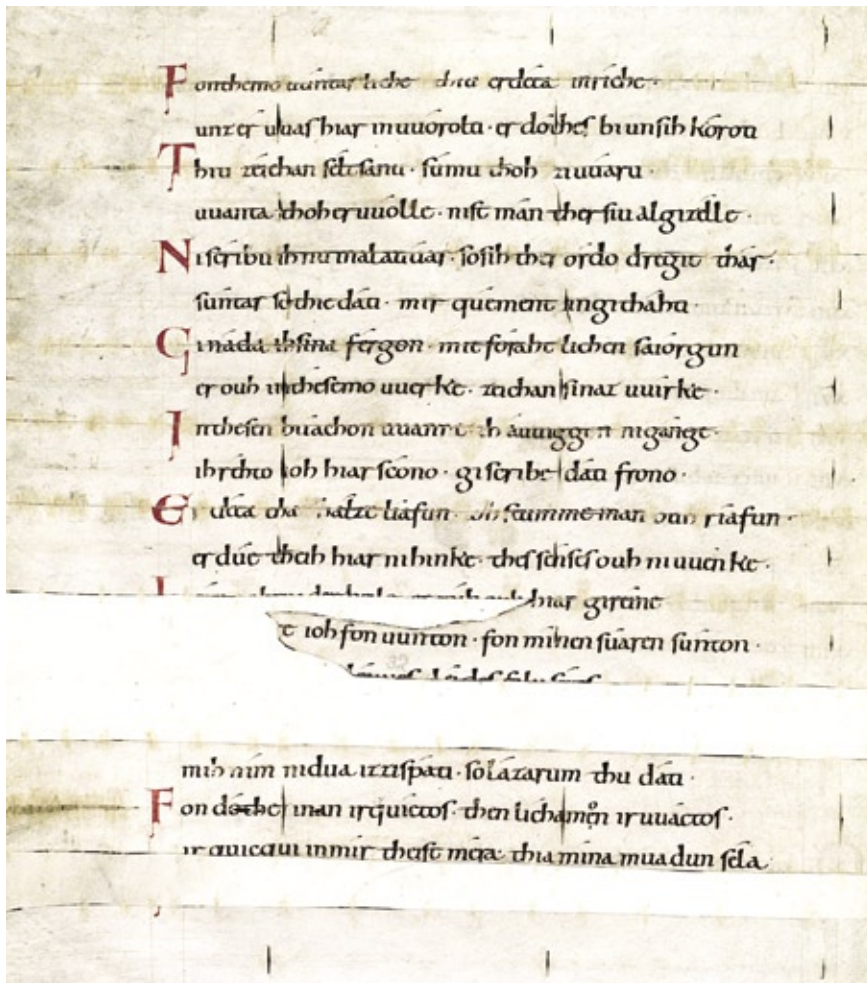 Fon themo uuntar liche thiu er deta inriche ·
unz er uuas hiar inuuórolti · er dothes biunsih kóroti
Thiu zeichan séltsanu · súmu thoh ziuuáru ·
uuanta thoh er uuólle · nist mán ther siu al gizélle ·
Niscribu ih nu inalauuár · sósih ther órdo drégit thár ·
súntar so thie dáti · mir quément in githáhti
Gináda ih sína férgon · mit fórahtlichen sórgon
er ouh inthésemo uuerke · zéichan sinaz uuírke ·
Inthesen búachon uuanne ih áuuiggon nigánge ·
ih réhto ioh hiar scóno · giscribe dáti fróno ·
Er deta halze líafun · stumme man ouh ríafun ·
er dúe theih hiar nihinke · thes sénses ouh niuuénke ·
hiar giréine
ioh fon uuúnton · fon mínen suáren súnton ·
mih nim so lázarum thu dáti ·
Fon dóthe inan irquíctos · then lichamon iruuáctos ·
irquicqui inmir theist méra thia mína muadun séla